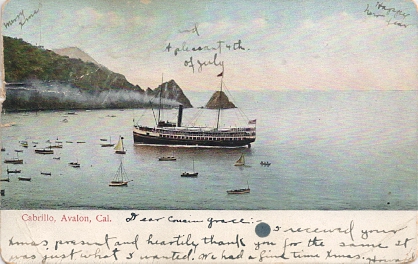 Merry
Xmas
and
A pleasant 4th.
of July
Happy
New Year
Cabrillo, Avalon, Cal.
Dear Cousin Grace:- I received your
Xmas present and heartily thank you for the same it
was just what I wanted. We had a fine time Xmas.